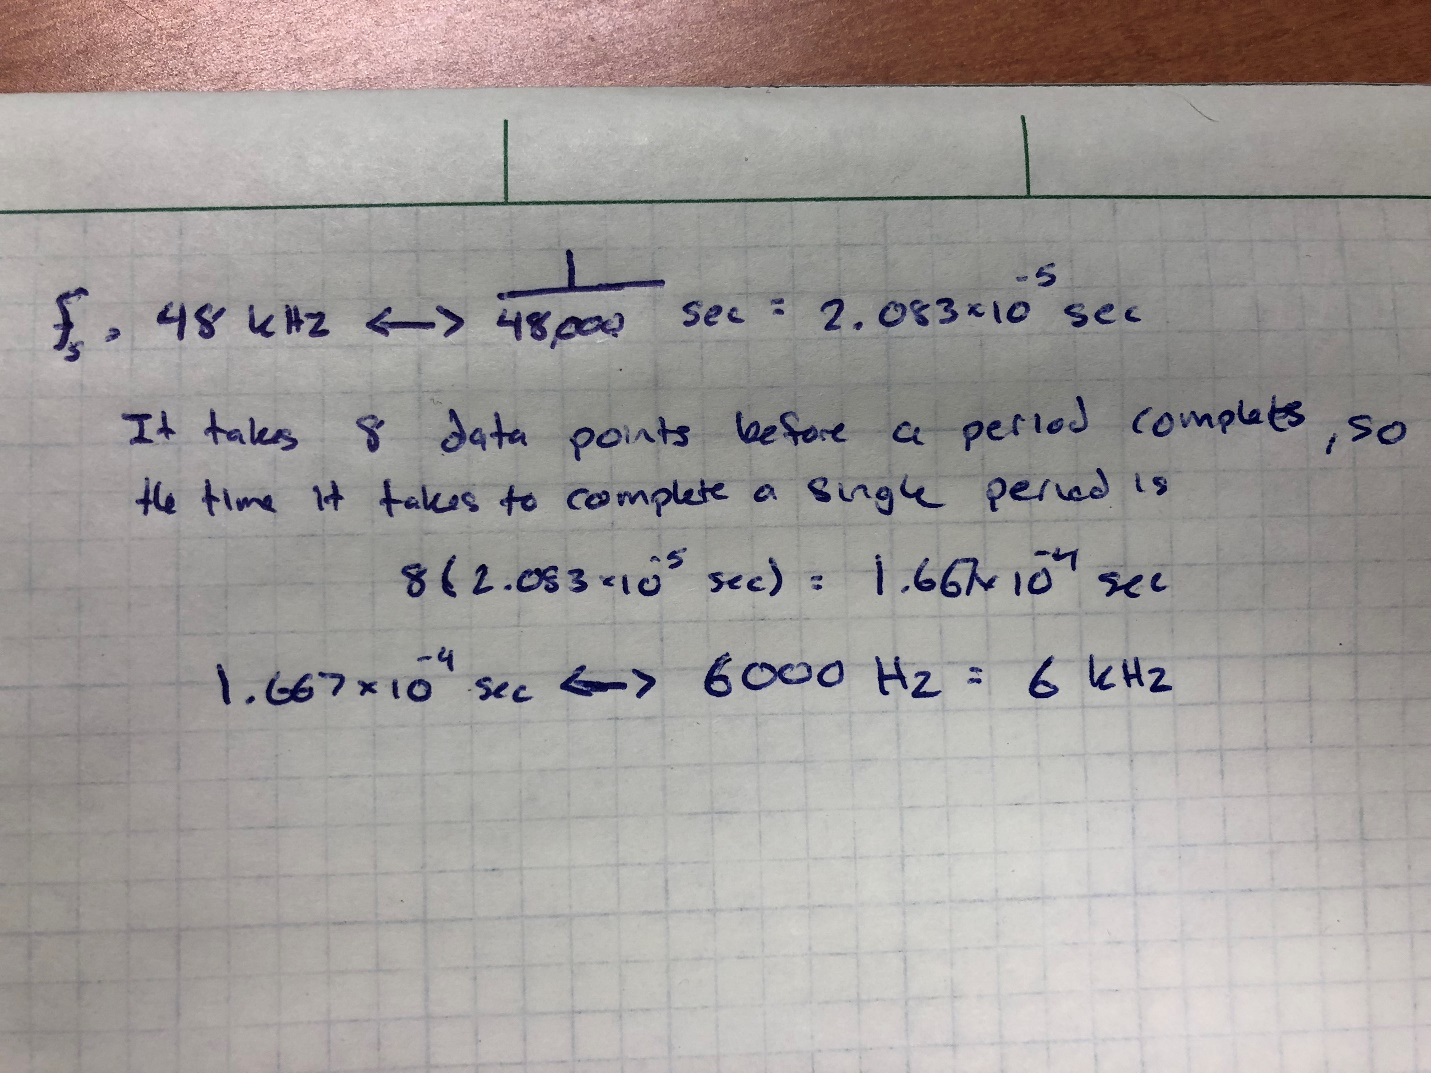 fs = 48 kHz <--> 1/48,000 sec = 2.083×10^-5 sec
It takes 8 data points before a period completes, so
the time it takes to complete a single period is
8(2.083×10^-5 sec) = 1.667×10^-4 sec
1.667×10^-4 sec <--> 6000 Hz = 6 kHz